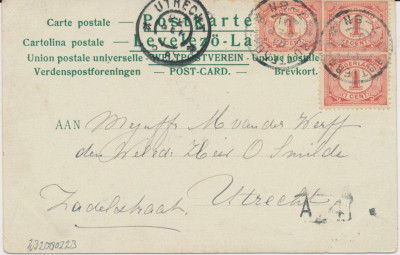 Carte postale — Postkarte
Cartolina postale — Levelező-La
Union postale universelle WELTPOSTVEREIN Unione postale
Verdenspostforeningen — POST-CARD. — Brévkort.
UTRECHT
1 CENT
1 CENT
1 CENT
AAN Mejuffr M van der Werff
den Weled. Heer O Smilde
Zadelstraat. Utrecht
A 24